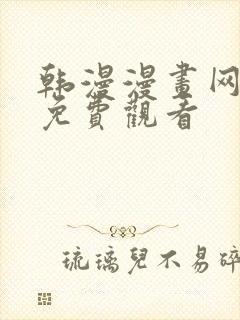 韩漫漫畫网
免費觀看
琉璃兒不易碎